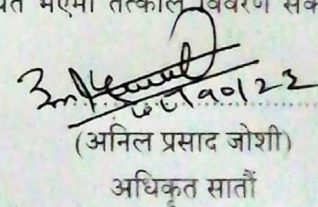 भएमा तत्काल विवरण
(अनिल प्रसाद जोशी)
अधिकृत सातौं